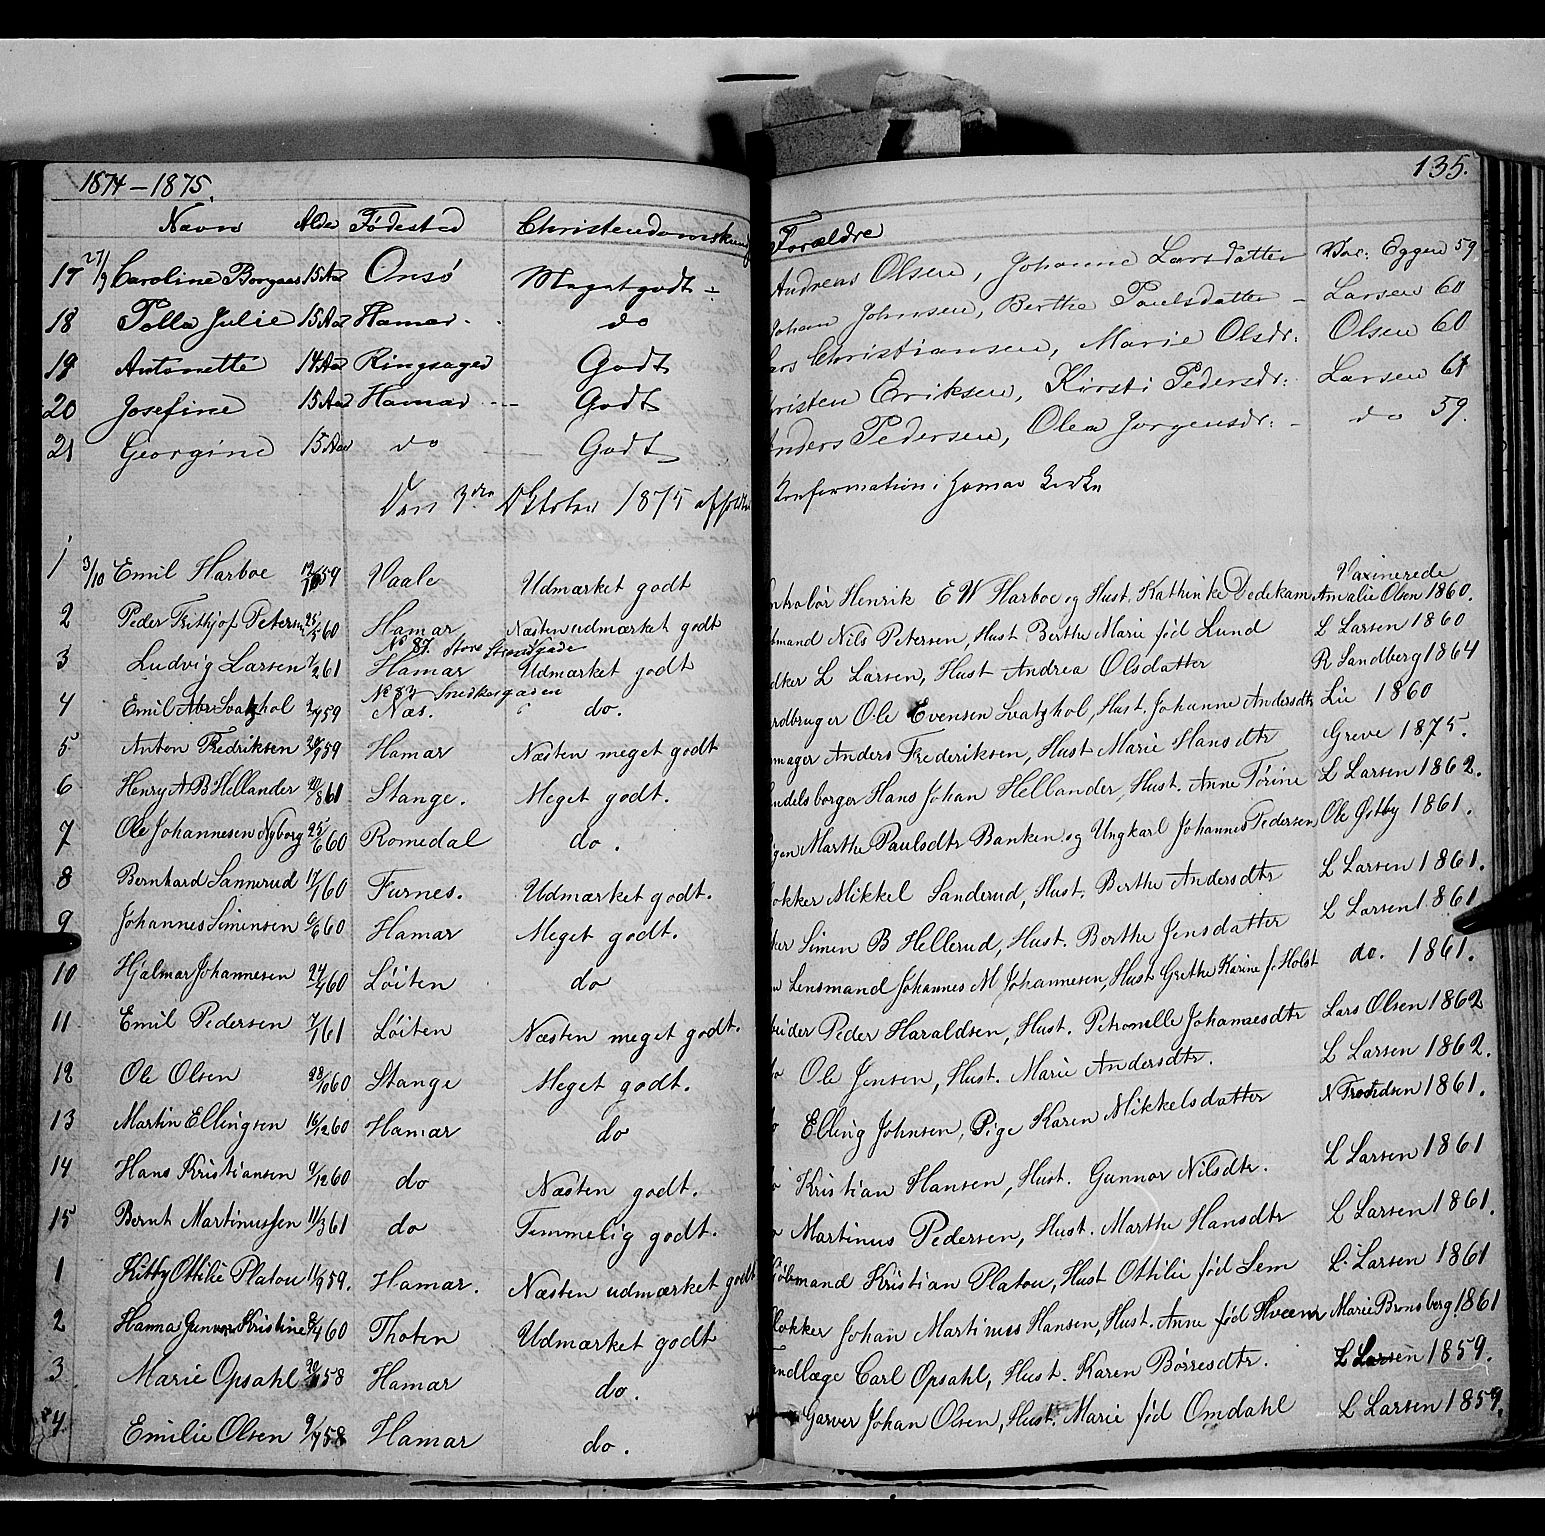 1874-1875. 135.
Navn Alder Fødested Christendomskund Forældre
17 27/9 Caroline Borgaas 15 Aar Onsø Meget godt ÷ Andreas Olsen, Johanne Larsdatter Vac: Eggen 59
18 Polla Julie 15 Aar Hamar do Johan Johnsen, Berthe Paulsdatter - Larsen 60
19 Antonette 14 Aar Ringsager Godt Christiansen, Marie Olsdr: Olsen 60
20 Josefine 15 Aar Hamar Godt Eriksen, Kirsti Pedersdr: Larsen 61
21 Georgine 15 Aar do Godt Anders Pedersen, Olea Jørgensdr: - do 59.
Den 3die Oktober 1875 Konfirmation i Hamar Kirke
Vaxinerede
1 3/10 Emil Harboe 59 Vaale Udmærket godt Henrik E W Harboe og Hust. Kathinke Dedekam Amalie Olsen 1860.
2 Peder Fritjof Petersen 25/5 60 Hamar Næsten udmærket godt Nils Petersen, Hust. Berthe Marie fød Lund L Larsen 1860
No 87. Store Strandgade
3 Ludvig Larsen 1/2 61 Hamar Udmærket godt L Larsen, Hust Andrea Olsdatter R Sandberg 1864
No 83 Snedkergaden
4 Emil Svatzhol 59 Næs. do. Ole Evensen Svatzhol, Hust. Johanne Andersdtr Lie 1860
5 Anton Fredriksen 59 Hamar Næsten meget godt Anders Frederiksen, Hust Marie Hansdtr Greve 1875.
6 Henry A B Hellander 20/8 61 Stange. Meget godt. Hans Johan Hellander, Hust. Anne Torine L Larsen 1862.
7 Ole Johannesen Nyborg 25/6 60 Romedal do. Marthe Paulsdtr Banken og Ungkarl Johannes Pedersen Ole Østby 1861.
8 Bernhard Sannerud 17/1 60 Furnes. Udmærket godt. Mikkel Sanderud, Hust. Berthe Andersdtr L Larsen 1861.
9 Johannes Simensen 6/6 60 Hamar Meget godt. Simen B Hellerud, Hust. Berthe Jensdatter L Larsen 1861
10 Hjalmar Johannesen 60 Løiten do Lensmand Johannes M Johannesen, Hust Grethe Karine f. Holst do. 1861.
11 Emil Pedersen 7/1 61 Løiten Næsten meget godt. Peder Haraldsen, Hust. Petronelle Johannesdtr Lars Olsen 1862
12 Ole Olsen 28/10 60 Stange Meget godt. Ole Jensen, Hust. Marie Andersdtr. L Larsen 1862.
13 Martin Ellingsen 16/12 60 Hamar do Elling Johnsen, Pige Karen Mikkelsdatter N Trondsen 1861.
14 Hans Kristiansen 1/12 60 do Næsten godt. Kristian Hansen, Hust. Gunnor Nilsdtr. L Larsen 1861
15 Bernt Martinussen 11/3 61 do Temmelig godt. Martinus Pedersen, Hust. Marthe Hansdtr L Larsen 1861.
1 Kitty Ottilie Platou 11/9 59. Hamar. Næsten udmærket godt Kjøbmand Kristian Platou, Hust Ottilie fød Lem L. Larsen 1861
2 Hanna Gunvor Kristine 8/4 60 Thoten Udmærket godt Johan Martinus Hansen, Hust. Anne fød Hveem Marie Bronsberg 1861
3 Marie Opsahl 58 Hamar do. Carl Opsahl, Hust. Karen Børresdtr. L Larsen 1859.
4. Emilie Olsen 9/7 58 Hamar do. Garver Johan Olsen, Hust. Marie fød Omdahl L Larsen 1859.